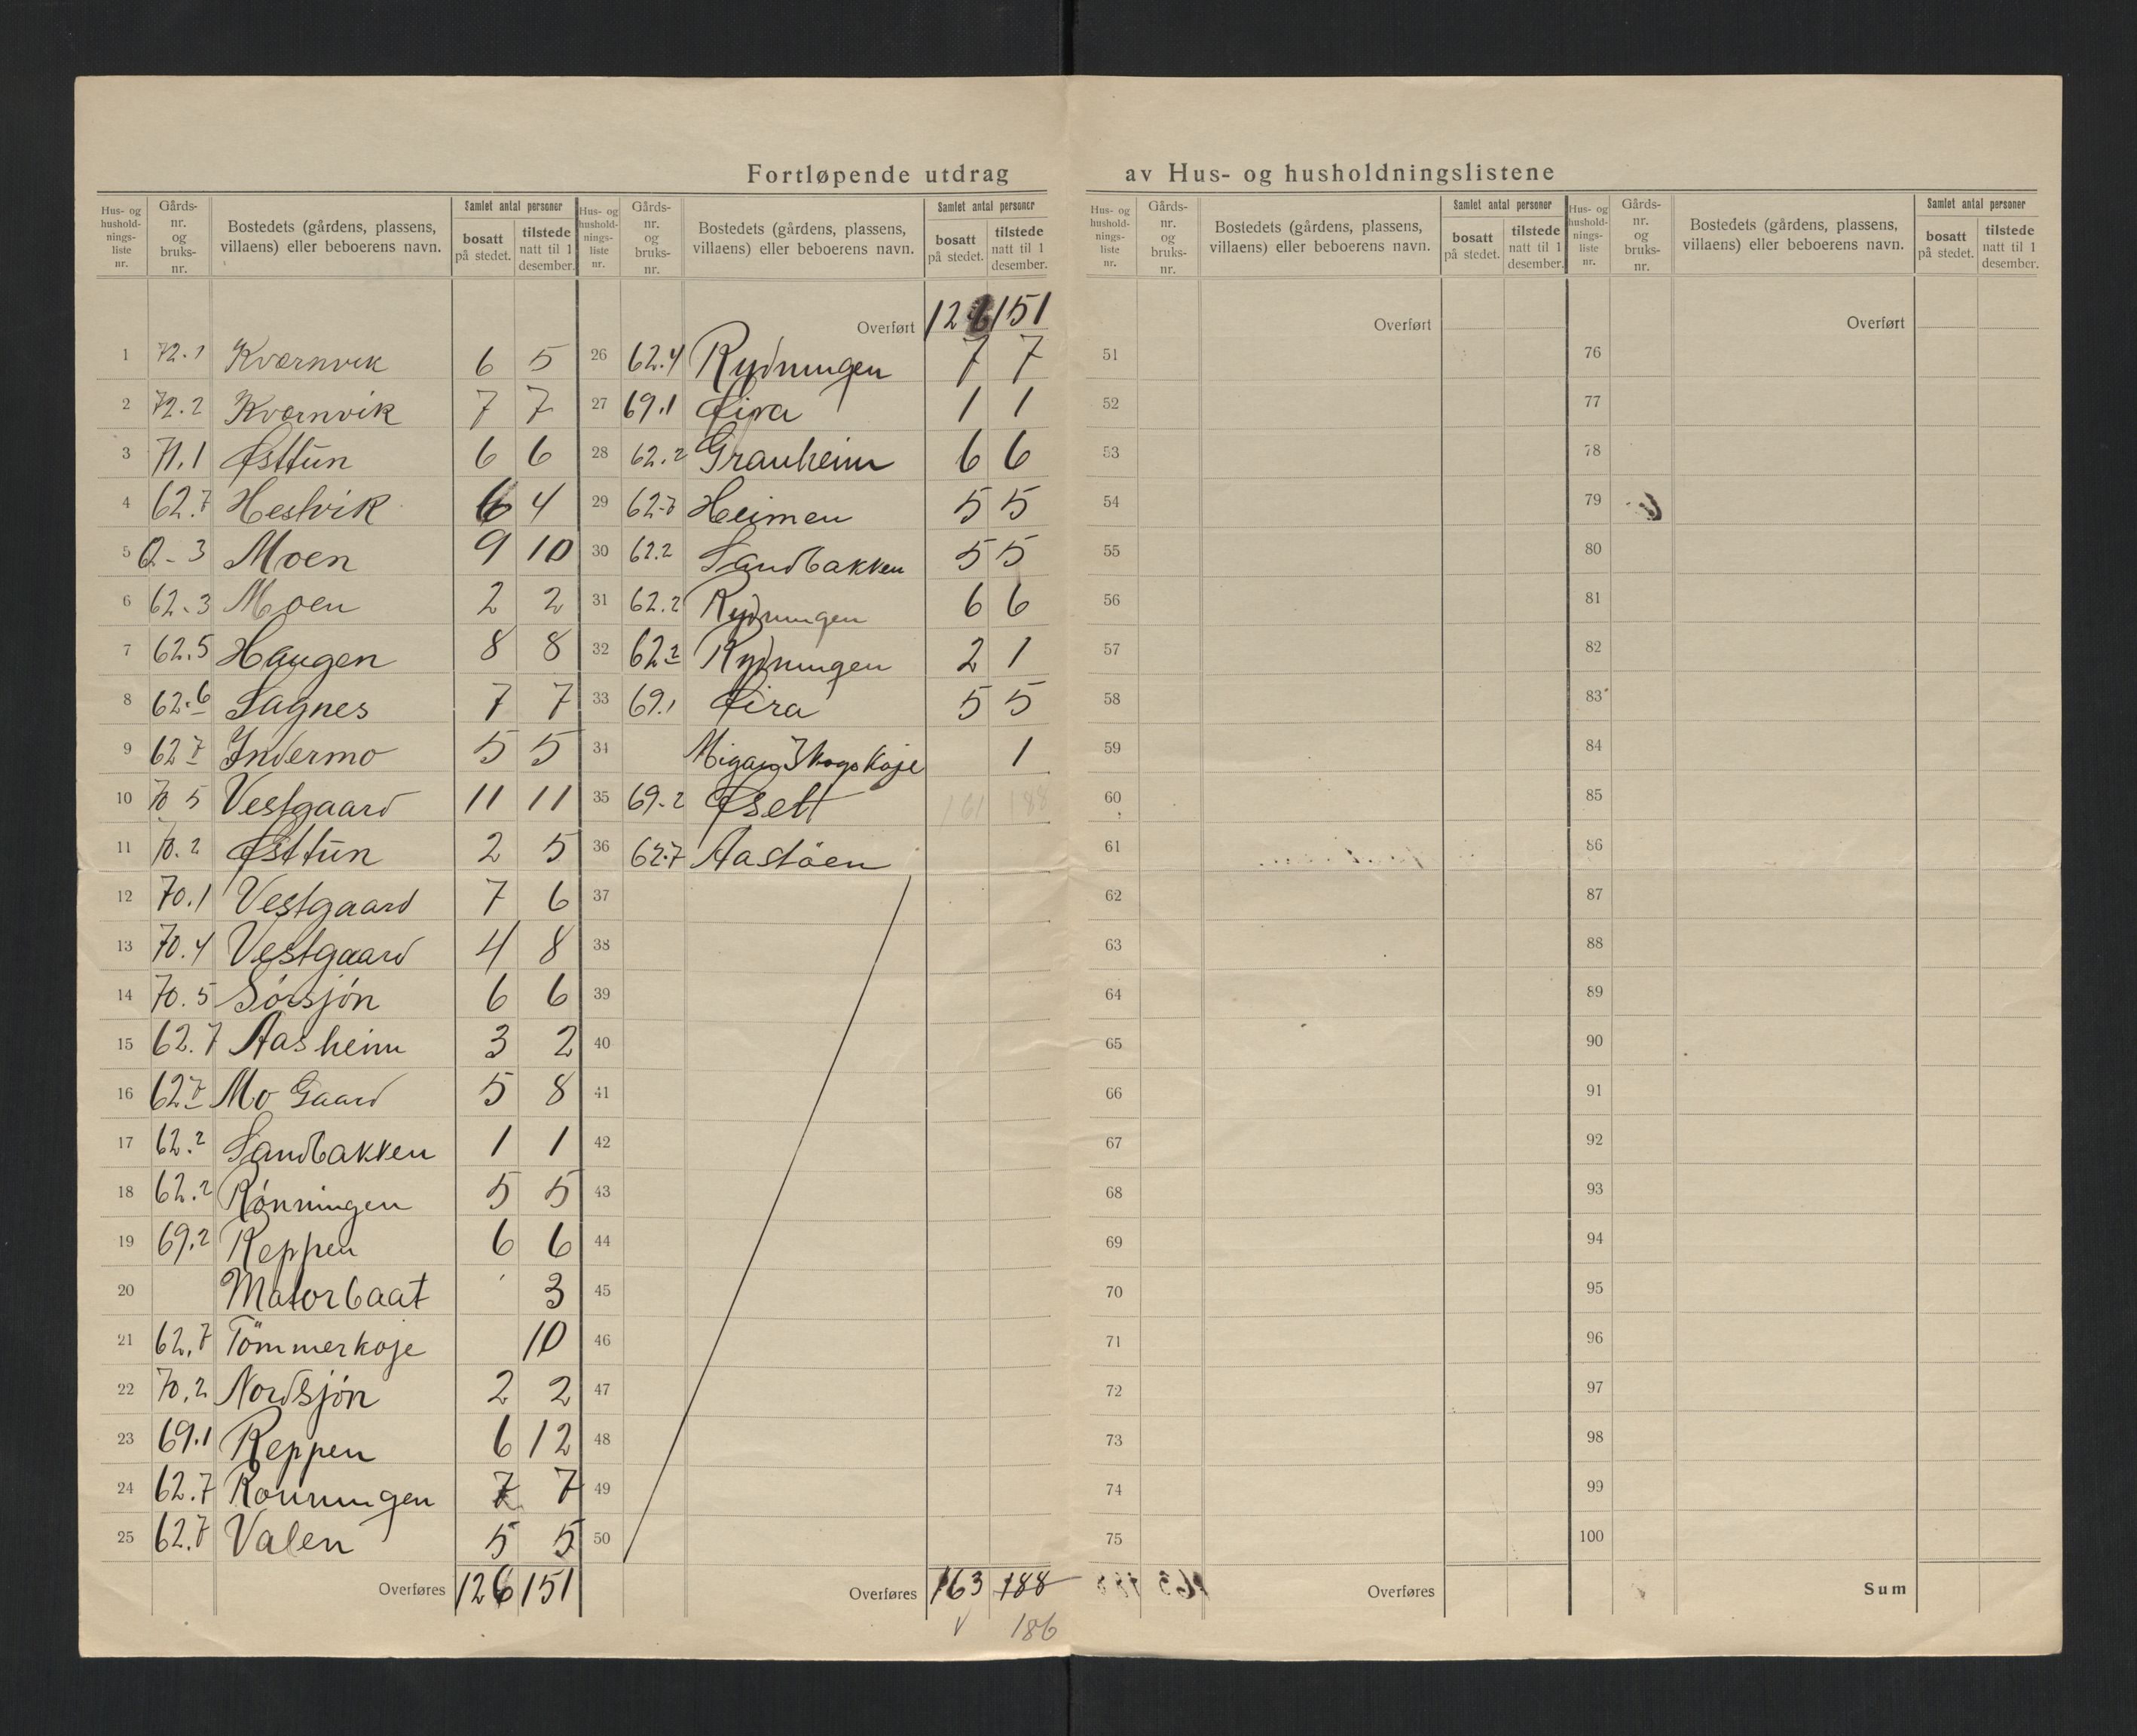 Fortløpende utdrag av Hus- og husholdningslistene
Hus- og hushold-nings-liste nr. Gårds-nr. og bruks-nr. Bostedets (gårdens, plassens, villaens) eller beboerens navn. Samlet antal personer bosatt på stedet. tilstede natt til 1 desember.
1 72.1 Kværnvik 6 5
2 72.2 Kværnvik 7 7
3 71.1 Østtün 6 6
4 62.7 Hestvik 6 4
5 62-3 Moen 9 10
6 62-3 Moen 2 2
7 62.5 Haugen 8 8
8 62.6 Sagnes 7 7
9 62 7 Indermo 5 5
10 70 5 Vestgaard 11 11
11 70.2 Østtün 2 5
12 70.1 Vestgaard 7 6
13 70.4 Vestgaard 4 8
14 70.5 Sörsjön 6 6
15 62.7 Aasheim 3 2
16 62 7 Mo Gaard 5 8
17 62.2 Sandbakken 1 1
18 62.2 Rönningen 5 5
19 69.2 Reppen 6 6
20 Matorbaat 3
21 62.7 Tömmerkoje 10
22 70.2 Nordsjön 2 2
23 69.1 Reppen 6 12
24 62.7 Rönningen 7 7
25 62.7 Valen 5 5
Overføres 126 151
Hus- og hushold-nings-liste nr. Gårds-nr. og bruks-nr. Bostedets (gårdens, plassens, villaens) eller beboerens navn. Samlet antal personer bosatt på stedet. tilstede natt til 1 desember.
Overført 126 151
26 62.4 Rydningen 7 7
27 69.1 Øira 1 1
28 62.2 Granheim 6 6
29 62-7 Heimen 5 5
30 62.2 Sandbakken 5 5
31 62.2 Rydningen 6 6
32 62 2 Rydningen 2 1
33 69.1 Øira 5 5
34 Skogskoje 1
35 69-2 Øsett 161 188
36 62.7 Aastöen
37
38
39
40
41
42
43
44
45
46
47
48
49
50
Overføres 163 188
186
Hus- og hushold-nings-liste nr. Gårds-nr. og bruks-nr. Bostedets (gårdens, plassens, villaens) eller beboerens navn. Samlet antal personer bosatt på stedet. tilstede natt til 1 desember.
Overført
51
52
53
54
55
56
57
58
59
60
61
62
63
64
65
66
67
68
69
70
71
72
73
74
75
Overføres
Hus- og hushold-nings-liste nr. Gårds-nr. og bruks-nr. Bostedets (gårdens, plassens, villaens) eller beboerens navn. Samlet antal personer bosatt på stedet. tilstede natt til 1 desember.
Overført
76
77
78
79
80
81
82
83
84
85
86
87
88
89
90
91
92
93
94
95
96
97
98
99
100
Sum